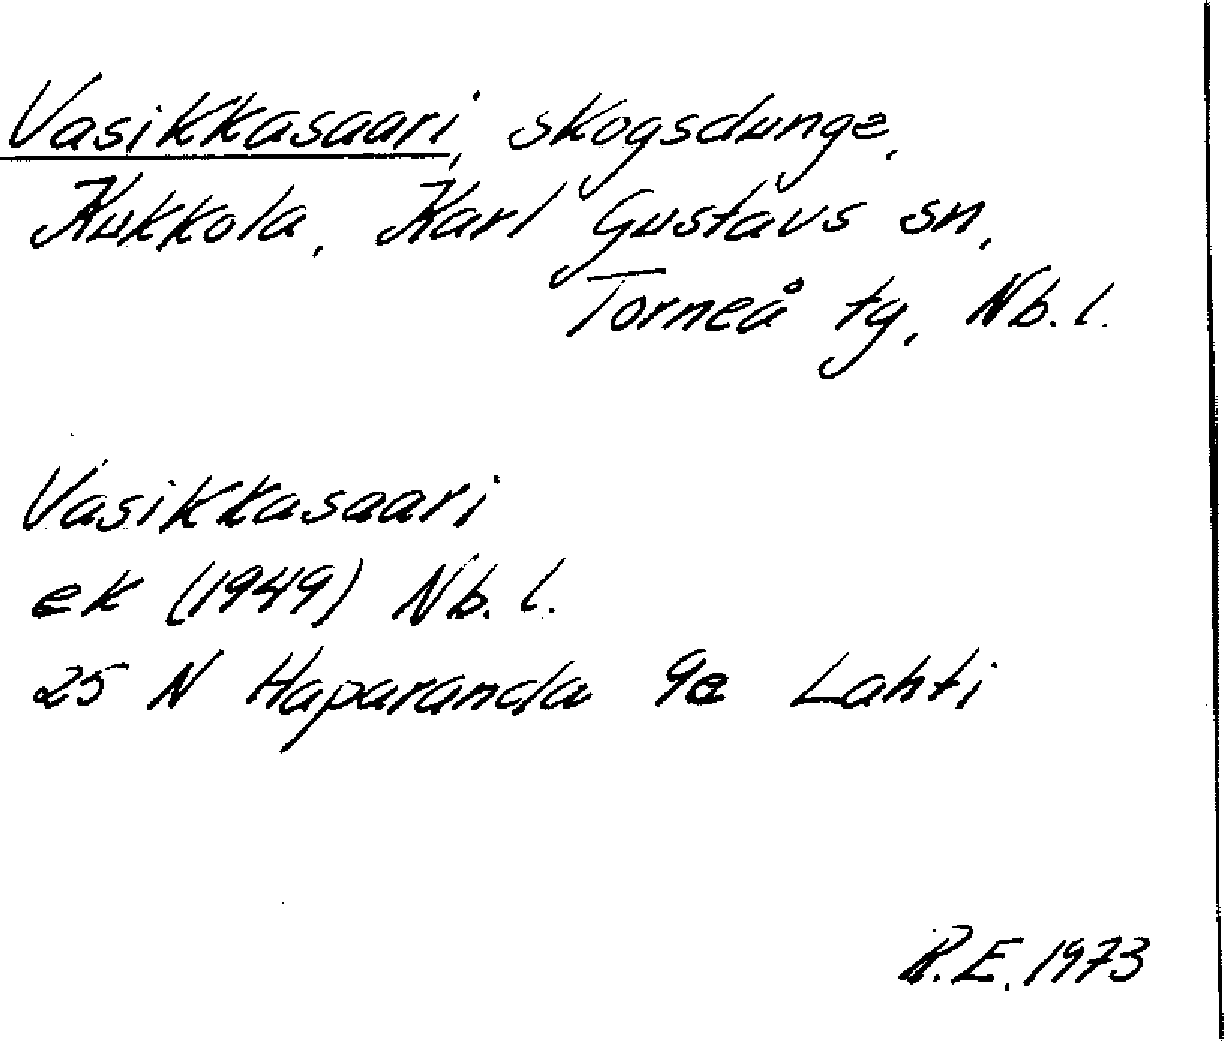 Vasikkasaari, skogsdunge,
Kukkola, Karl Gustavs sn,
Torneå tg, Nb. l.
Vasikkasaari
ek (1949) Nb. l.
25 N Haparanda 9e Lahti
R.E. 1973